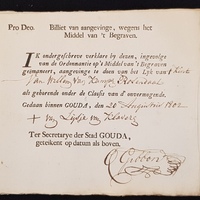 Pro Deo. Billiet van aangevinge, wegens het
Middel van 't Begraven.
IK ondergeschreve verklare by dezen, ingevolge
van de Ordonnantie op 't Middel van 't Begraven
geëmaneert, aangevinge te doen van het Lyk van 't kint
van Willem van
als gehorende onder de Classis van d' onvermogende.
Gedaan binnen GOUDA, den 20 Augustus 1802
+ van Lijsje van Klavere
Ter Secretarye der Stad GOUDA,
geteikent op datum als boven.